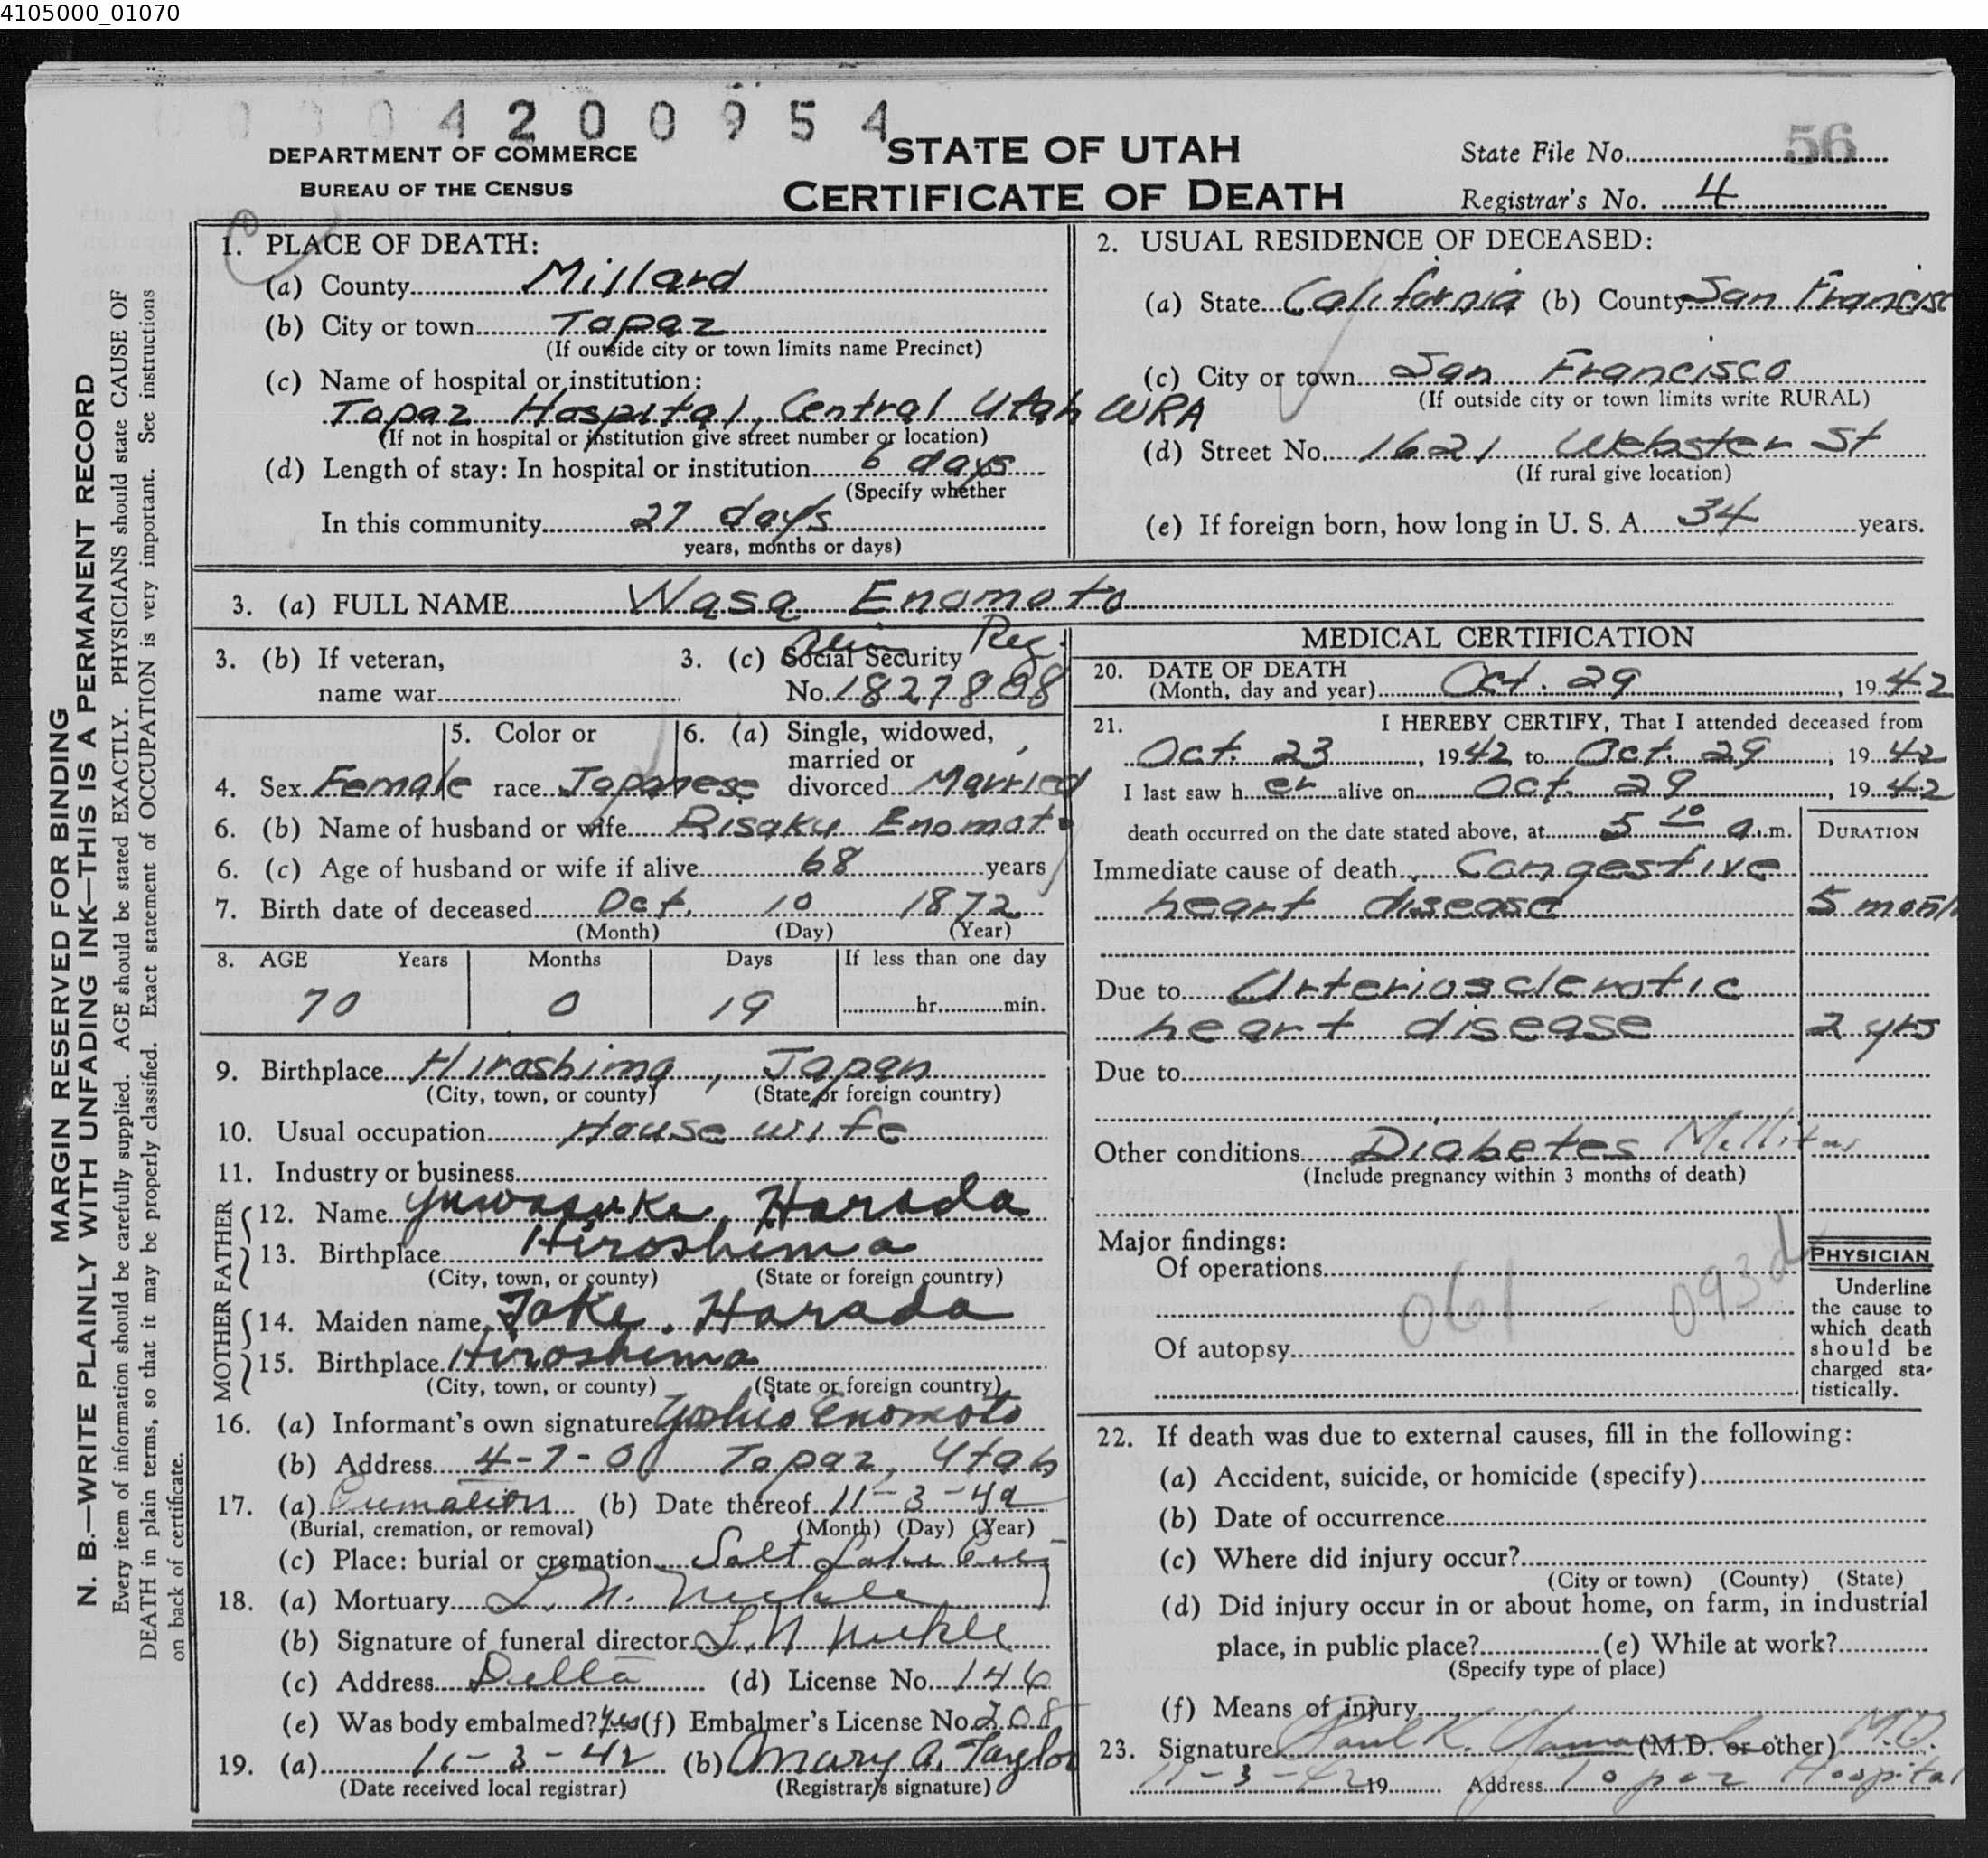 4105000_01070
0 0 0 0 4 2 0 0 9 5 4
DEPARTMENT OF COMMERCE
BUREAU OF THE CENSUS
STATE OF UTAH
CERTIFICATE OF DEATH
State File No. 56
Registrar's No. 4
MARGIN RESERVED FOR BINDING
N. B.—WRITE PLAINLY WITH UNFADING INK—THIS IS A PERMANENT RECORD
Every item of information should be carefully supplied. AGE should be stated EXACTLY. PHYSICIANS should state CAUSE OF
DEATH in plain terms, so that it may be properly classified. Exact statement of OCCUPATION is very important. See instructions
on back of certificate.
1. PLACE OF DEATH:
(a) County Millard
(b) City or town Topaz
(If outside city or town limits name Precinct)
(c) Name of hospital or institution:
Topaz Hospital, Central Utah WRA
(If not in hospital or institution give street number or location)
(d) Length of stay: In hospital or institution 6 days
(Specify whether
In this community 27 days
years, months or days)
2. USUAL RESIDENCE OF DECEASED:
(a) State California (b) County San Francisc
(c) City or town San Francisco
(If outside city or town limits write RURAL)
(d) Street No. 1621 Webster St
(If rural give location)
(e) If foreign born, how long in U. S. A. 34 years.
3. (a) FULL NAME Wasa Enomoto
3. (b) If veteran,
name war
Alien Reg.
3. (c) Social Security
No. 1827808
4. Sex Female
5. Color or
race Japanese
6. (a) Single, widowed,
married or
divorced Married
6. (b) Name of husband or wife Risaku Enomoto
6. (c) Age of husband or wife if alive 68 years
7. Birth date of deceased Oct. 10 1872
(Month) (Day) (Year)
8. AGE Years Months Days If less than one day
70 0 19 hr. min.
9. Birthplace Hiroshima, Japan
(City, town, or county) (State or foreign country)
10. Usual occupation House wife
11. Industry or business
FATHER
12. Name Yuwasuke Harada
13. Birthplace Hiroshima
(City, town, or county) (State or foreign country)
MOTHER
14. Maiden name Take Harada
15. Birthplace Hiroshima
(City, town, or county) (State or foreign country)
16. (a) Informant's own signature Yoshio Enomoto
(b) Address 4-7-D Topaz, Utah
17. (a) Cremation (b) Date thereof 11-3-42
(Burial, cremation, or removal) (Month) (Day) (Year)
(c) Place: burial or cremation Salt Lake City
18. (a) Mortuary L. N. Nickle
(b) Signature of funeral director L. N. Nickle
(c) Address Delta (d) License No. 146
(e) Was body embalmed? Yes (f) Embalmer's License No. 208
19. (a) 11-3-42 (b) Mary A. Taylor
(Date received local registrar) (Registrar's signature)
MEDICAL CERTIFICATION
20. DATE OF DEATH
(Month, day and year) Oct. 29, 1942
21. I HEREBY CERTIFY, That I attended deceased from
Oct. 23, 1942 to Oct. 29, 1942
I last saw her alive on Oct. 29, 1942
death occurred on the date stated above, at 5 10 a.m.
DURATION
Immediate cause of death Congestive
heart disease 5 month
Due to Arteriosclerotic
heart disease 2 yrs
Due to
Other conditions Diabetes Mellitus
(Include pregnancy within 3 months of death)
Major findings:
Of operations
061 - 093d
Of autopsy
PHYSICIAN
Underline
the cause to
which death
should be
charged sta-
tistically.
22. If death was due to external causes, fill in the following:
(a) Accident, suicide, or homicide (specify)
(b) Date of occurrence
(c) Where did injury occur?
(City or town) (County) (State)
(d) Did injury occur in or about home, on farm, in industrial
place, in public place? (e) While at work?
(Specify type of place)
(f) Means of injury
23. Signature Paul K. (M.D. or other) M.D.
11-3-42 19 Address Topaz Hospital